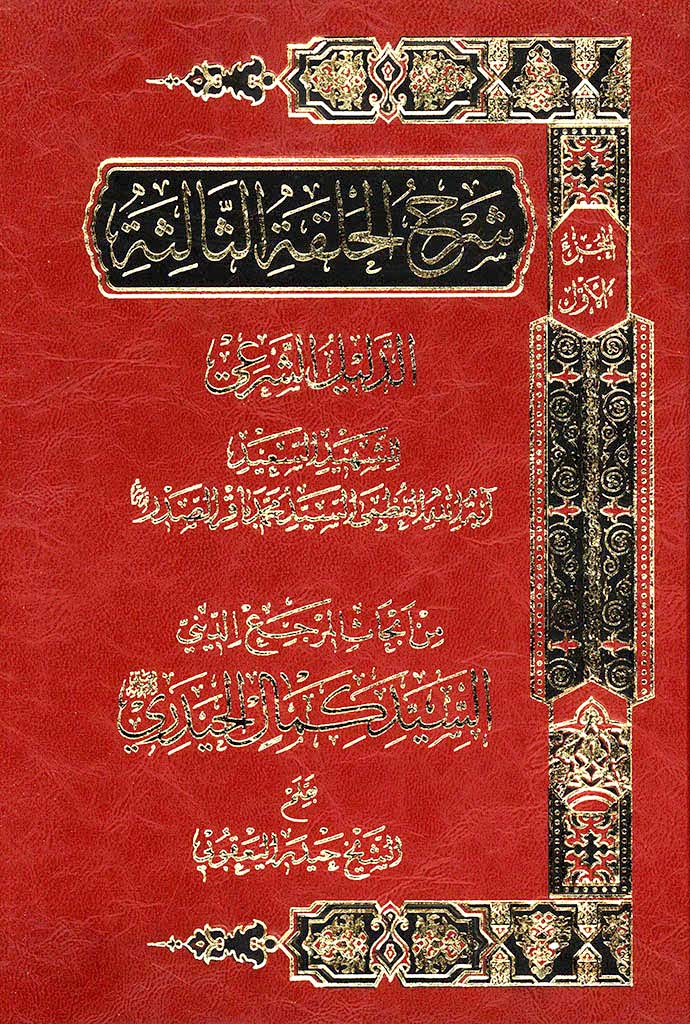 شَرْحُ الحَلَقَةِ الثَّالِثَةِ
الجُزءُ
الأَوَّل
الدَّلِيلُ الشَّرعِيّ
للشَّهِيدِ السَّعِيدِ
آية الله العظمى السيد محمد باقر الصدر
مِنْ أبحَاثِ المرجَعِ الدِّينيّ
السَّيِّد كَمَال الحَيدَرِيّ
بقلم
الشيخ حيدر اليعقوبي